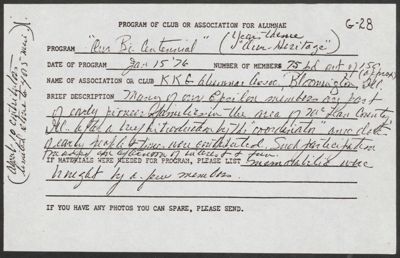 PROGRAM OF CLUB OR ASSOCIATION FOR ALUMNAE
G-28
PROGRAM "Our Bi Centennial" (Year Theme "Our Heritage")
DATE OF PROGRAM Jan 15 '76 NUMBER OF MEMBERS 75 pd out of 150 (approx)
NAME OF ASSOCIATION OR CLUB KKG Alumnae Assoc. Bloomington, Ill.
BRIEF DESCRIPTION Many of our Epsilon members are part
of early pioneer families in the area of McLean County,
Ill. After a brief introduction by the "coordinator" anecdotes
of early people & times were contributed. Such participation
makes
IF MATERIALS WERE NEEDED FOR PROGRAM, PLEASE LIST memorabilia were
brought by a few members.
IF YOU HAVE ANY PHOTOS YOU CAN SPARE, PLEASE SEND.